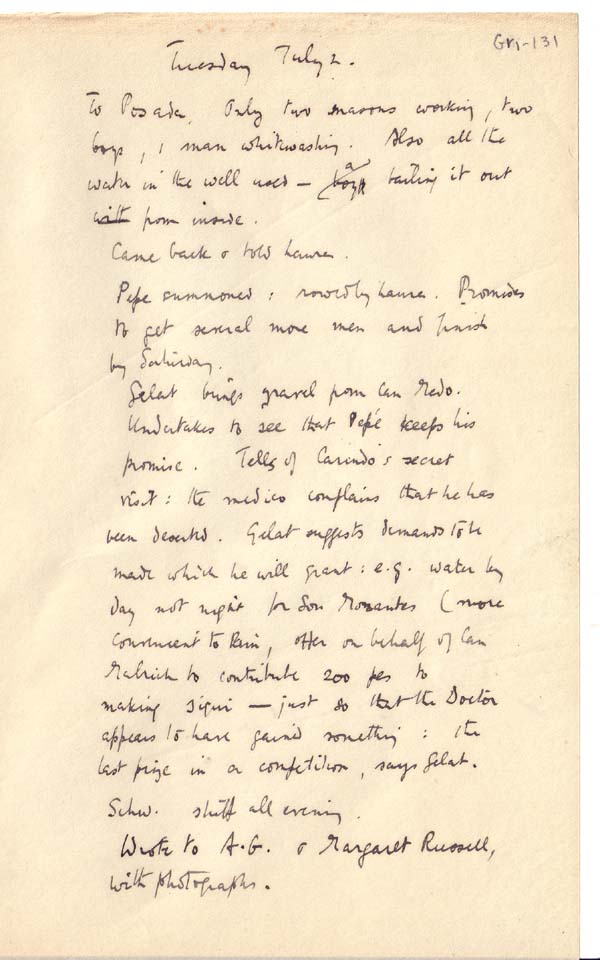 Gri-131
Tuesday July 2.
To Posada. Only two masons working, two
boys, 1 man whitwashing. Also all the
water in the well used — a boys bailing it out
with from inside.
Came back & told Laura.
Pepe summoned: rowed by Laura. Promises
to get several more men and finish
by Saturday.
Gelat brings gravel from Can Medo.
Undertakes to see that Pepé keeps his
promise. Tells of Carindo's secret
visit: the medico complains that he has
been deserted. Gelat suggests demands to be
made which he will grant: e.g. water by
day not night for Son Monantes (more
convenient to them, offer on behalf of Can
Malrich to contribute 200 pes to
making siqui — just so that the Doctor
appears to have gained something: the
last prize in a competition, says Gelat.
Schw. stuff all evening.
Wrote to A.G. & Margaret Russell,
with photographs.